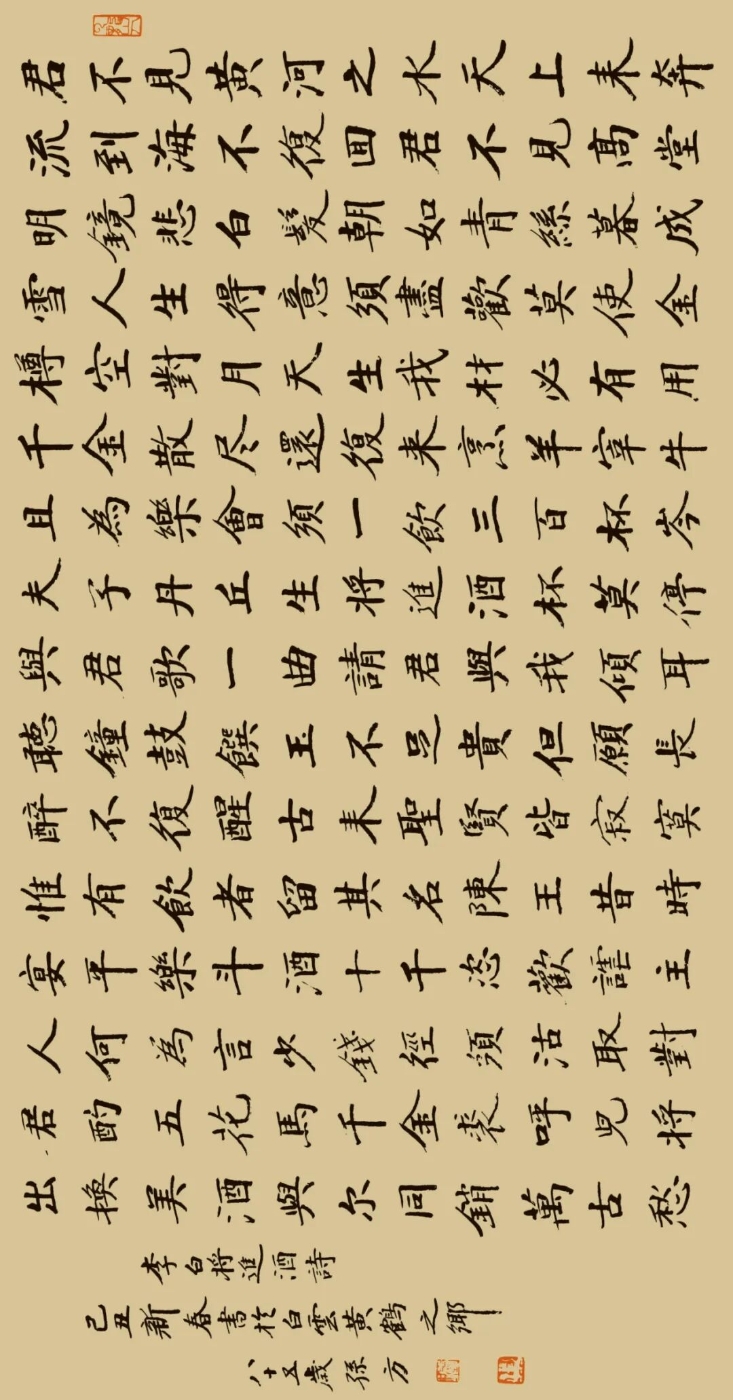 君不見黃河之水天上来奔
流到海不復回君不見高堂
明鏡悲白髮朝如青絲暮成
雪人生得意須盡歡莫使金
樽空對月天生我材必有用
千金散尽還復来烹羊宰牛
且為樂會須一飲三百杯岑
夫子丹丘生将進酒杯莫停
與君歌一曲請君與我傾耳
聽鐘鼓饌玉不足貴但願長
醉不復醒古来聖賢皆寂寞
惟有飲者留其名陳王昔時
宴平樂斗酒十千恣歡謔主
人何為言少錢徑須沽取對
君酌五花馬千金裘呼兒将
出換美酒與尔同銷萬古愁
李白将進酒詩
己丑新春書於白雲黄鶴之鄉
八十五歲孫方